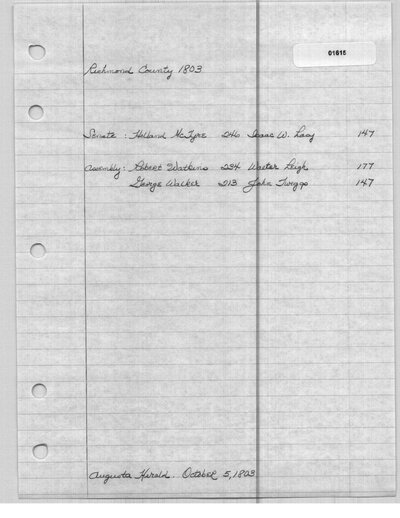 01615
Richmond County 1803
Senate : Holland McTyre 246 Isaac W. Lacy 147
Assembly: Robert Watkins 234 Walter Leigh 177
George Walker 213 John Twiggs 147
Augusta Herald. October 5, 1803